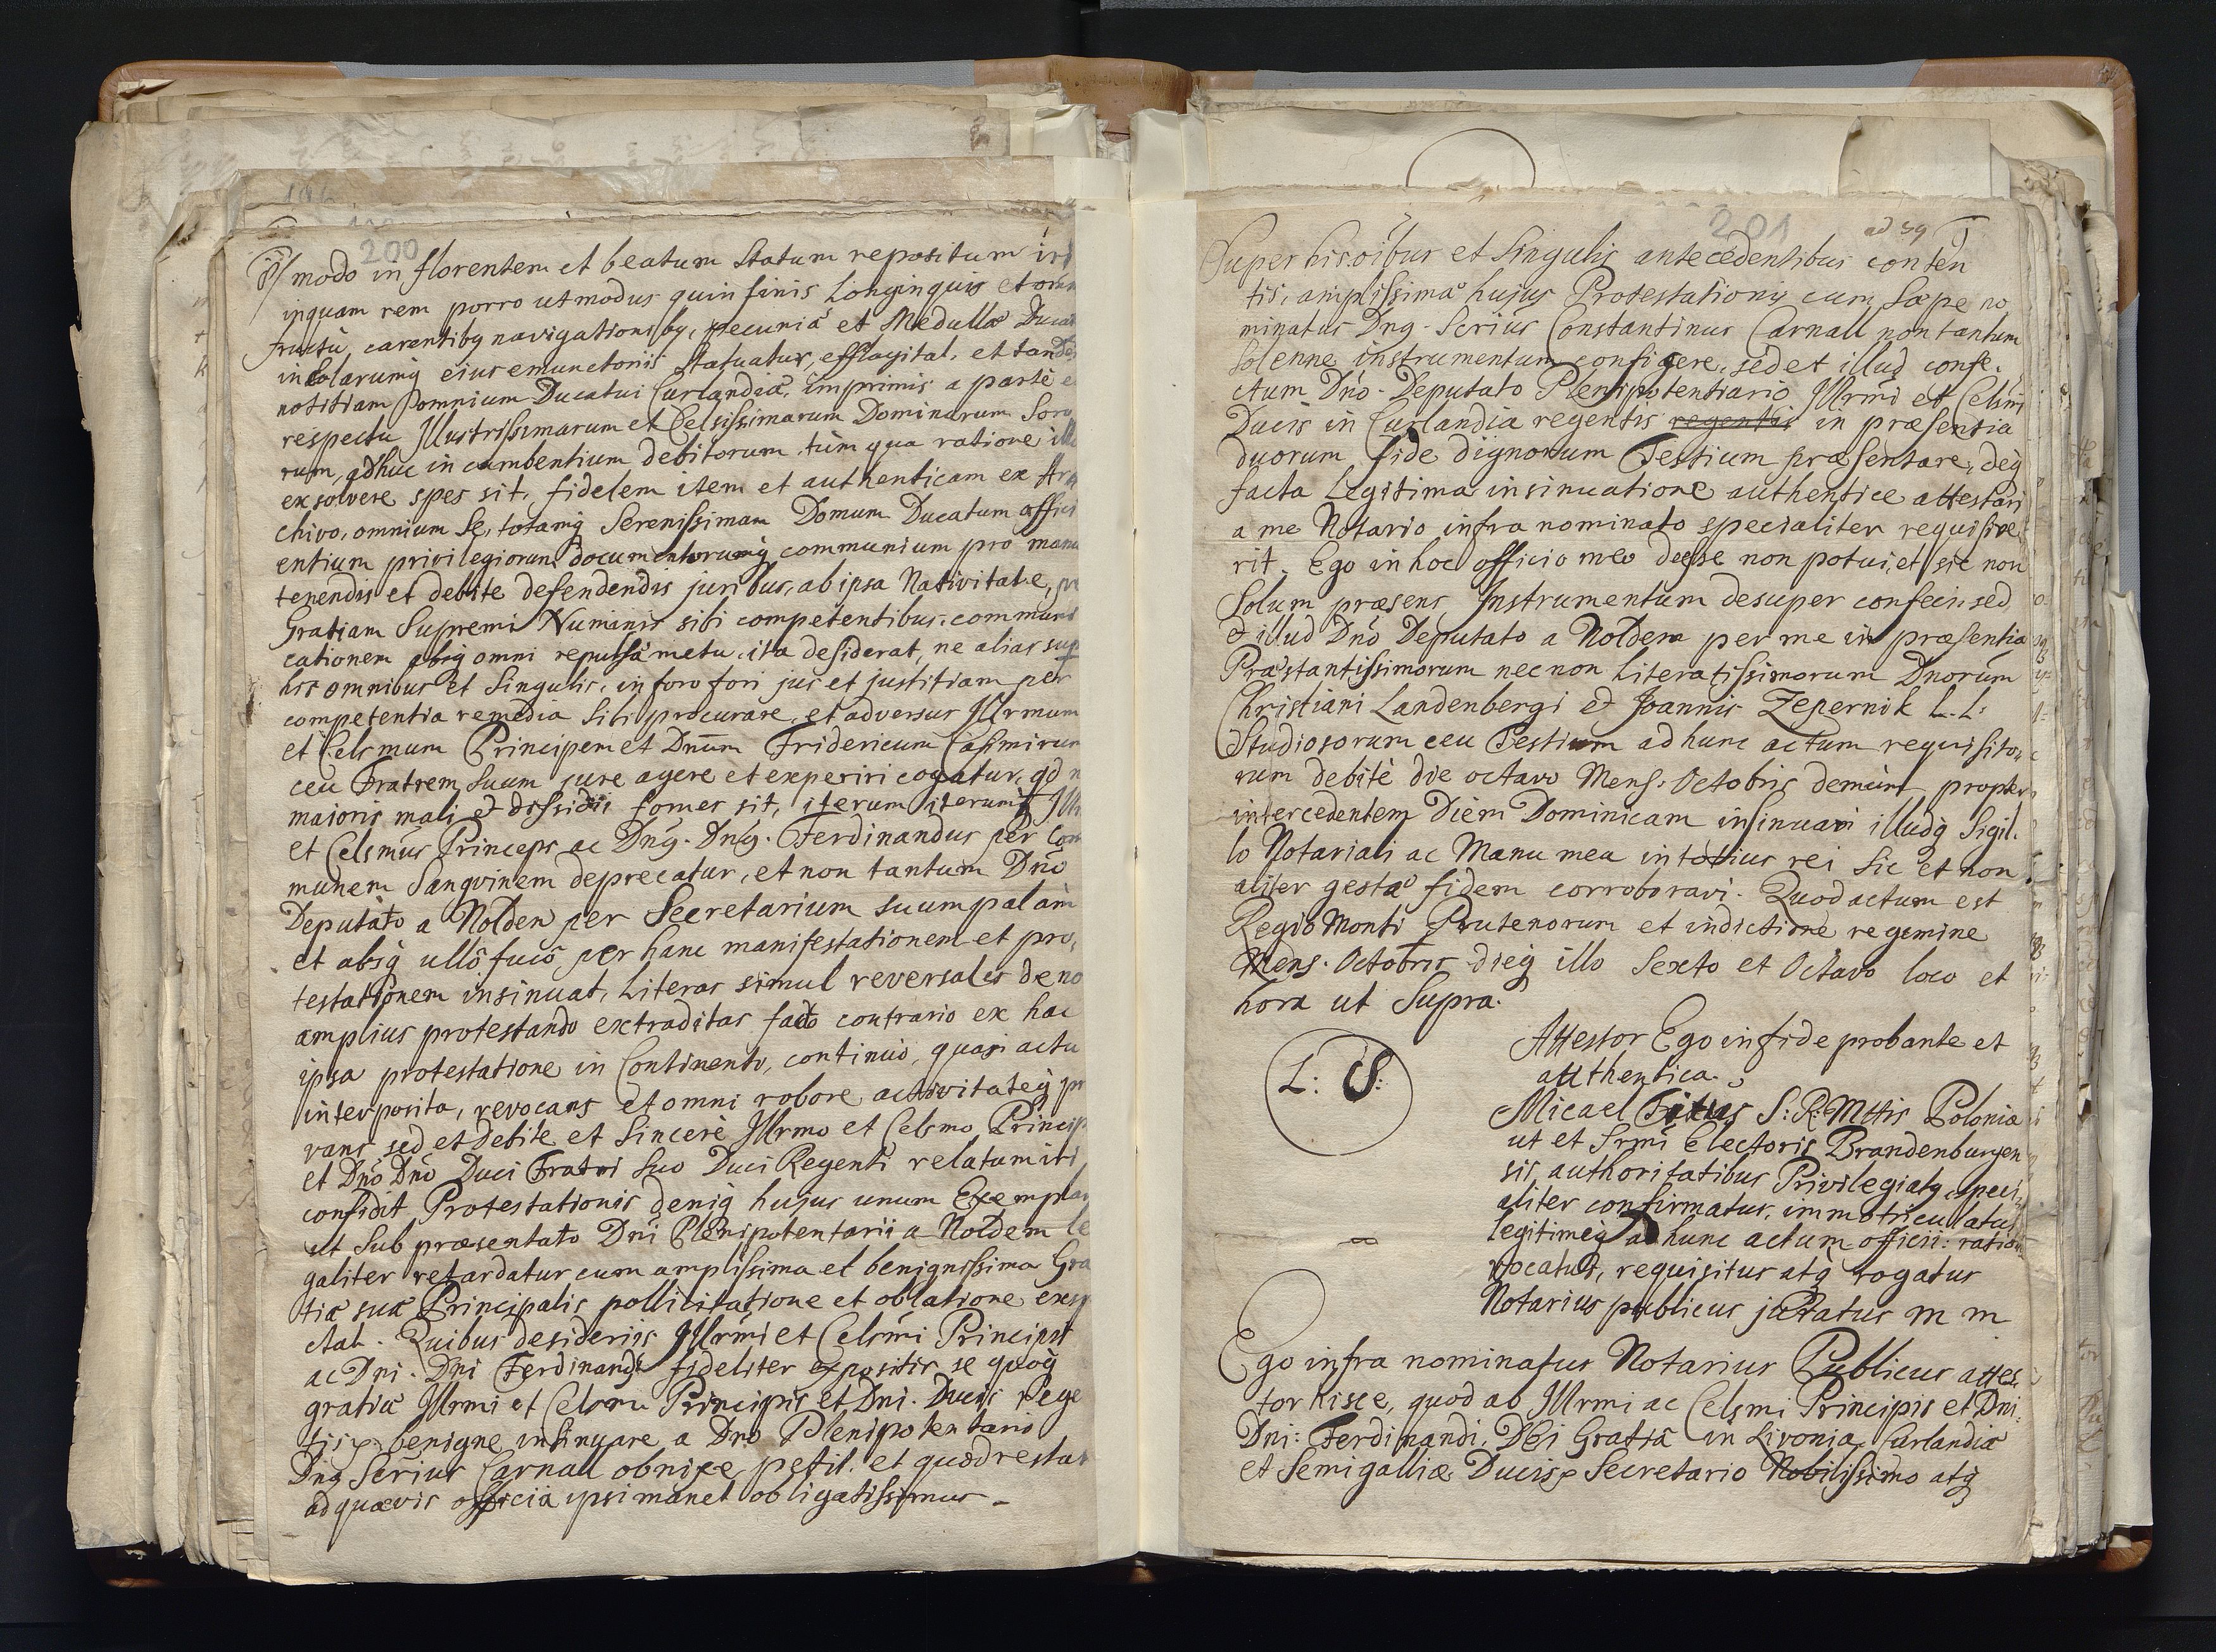 200
modo in florentem et beatum Statum repositum
inquam rem porro ut modus quin finis Longinquis et
fructu carentibq navigationibq, pecuniâ et Medullâ
incolarumq eius emunctoriis statuatur, efflagital. et tand
notitiam omnium Ducatui Curlandiæ, imprimis a parte
respectu Illustrissimarum et Celsissimarum Dominarum Soro
rum, adhuc in cumbentium debitorum, tùm qua ratione
exsolvere spes sit, fidelem item et authenticam ex Ar
chivo, omnium se, totamq Serenissimam Domum Ducatum affici
entium privilegiorum documentorumq communium pro manu
tenendis et debite defendendis juribus, ab ipsa Nativitate,
Gratiam Supremi Numinis sibi competentibus, communi
cationem absq omni repulsæ metu, ita desiderat, ne alias sup
his omnibus et Singulis, in foro fori jus et justitiam per
competentia remedia Sibi procurare, et adversus Illrmum
et Celsmum Principem et Dnum Fridericum Casimirum
ceu Fratrem Suum jure agere et experiri cogatur, qd
maioris mali et dissidii fomes sit, iterum iterumq
et Celsmus Princeps ac Dnq. Dnq. Ferdinandus per Com
munem Sangvinem deprecatur, et non tantum Dno
Deputato a Nolden per Secretarium suum palam
et absq ullô fucô per hanc manifestationem et pro,
testationem insinuat, Literas simul reversales deno
amplius protestando extraditas facto contrario ex hac
ipsa protestatione in Continenti, continuò, quasi actu
interposita, revocans et omni robore activitateq
vans sed et debite et Sincerè Illrmo et Celsmo Princip
et Dno Dno Duci Fratri Suo Duci Regenti relatum iri
confidit Protestationis deniq hujus unum Exemplar
ut Sub præsentato Dni Plenipotentarii a Noldem le
galiter retardatur cum amplissima et benignissima Gra
tiæ suæ Principalis pollicitatione et oblatione exsp
ctat. Quibus desideriis Illrmi et Celsmi Principis
ac Dni. Dni Ferdinandi fideliter expositis se quoq
gratiæ Illrmi et Celsmi Principis et Dni. Ducis Rege
tis benigne insinuare a Dno Plenipotentario
Dnq Serius Carnall obnixe petit. et quod restat
ad quævis officia ipsi manet obligatissimus.
201 ad 39
Super his oibus et Singulis antecedentibus conten
tis, amplissima hujus Protestationis cum Sæpe no
minatus Dnq. Serius Constantinus Carnall non tantum
Solenne instrumentum conficere, sed et illud confe.
ctum Dno. Deputato Plenipotentiario Illrmi et Celsmi
Ducis in Curlandia regentis regentis in præsentia
duorum fide dignorum Testium præsentare, deq
facta Legitima insinuatione authentice attestari
a me Notario infra nominato specialiter requisive
rit. Ego in hoc officio meo deesse non potui, et sic non
Solum præsens Instrumentum desuper confeci, sed
et illud Dno Deputato a Noldem per me in præsentia
Præstantissimorum nec non Literatissimorum Dnorum
Christiani Landenbergi et Joannis Zepernik L. L:
Studiosorum ceu Testium ad hunc actum requisito,
rum debitè die octavo Mens. Octobris demùm propter
intercedentem Diem Dominicam insinuavi illudq Sigil.
lo Notariali ac Manu mea in totius rei Sic et non
aliter gestæ fidem corroboravi. Quod actum est
Regio Monti Prutenorum et indictione regimine
Mens. Octobris dieq illo Sexto et Octavo loco et
hora ut Supra.
L: S:
Attestor Ego in fide probante et
authentica.
Micael S: R: Mttis Poloniæ
ut et Srmi Electoris Brandenburgen
sis authoritatibus Privilegiatq speci
aliter confirmatus, immatriculatus
legitimeq ad hunc actum officii: ration
vocatus, requisitus atq rogatus
Notarius publicus juratus m m
Ego infra nominatus Notarius Publicus attes
tor hisce, quod ab Illrmi ac Celsmi Principis et Dni
Dni: Ferdinandi, Dei Gratiâ in Livonia, Curlandiæ
et Semigalliæ Ducis Secretario Nobilissimo atq